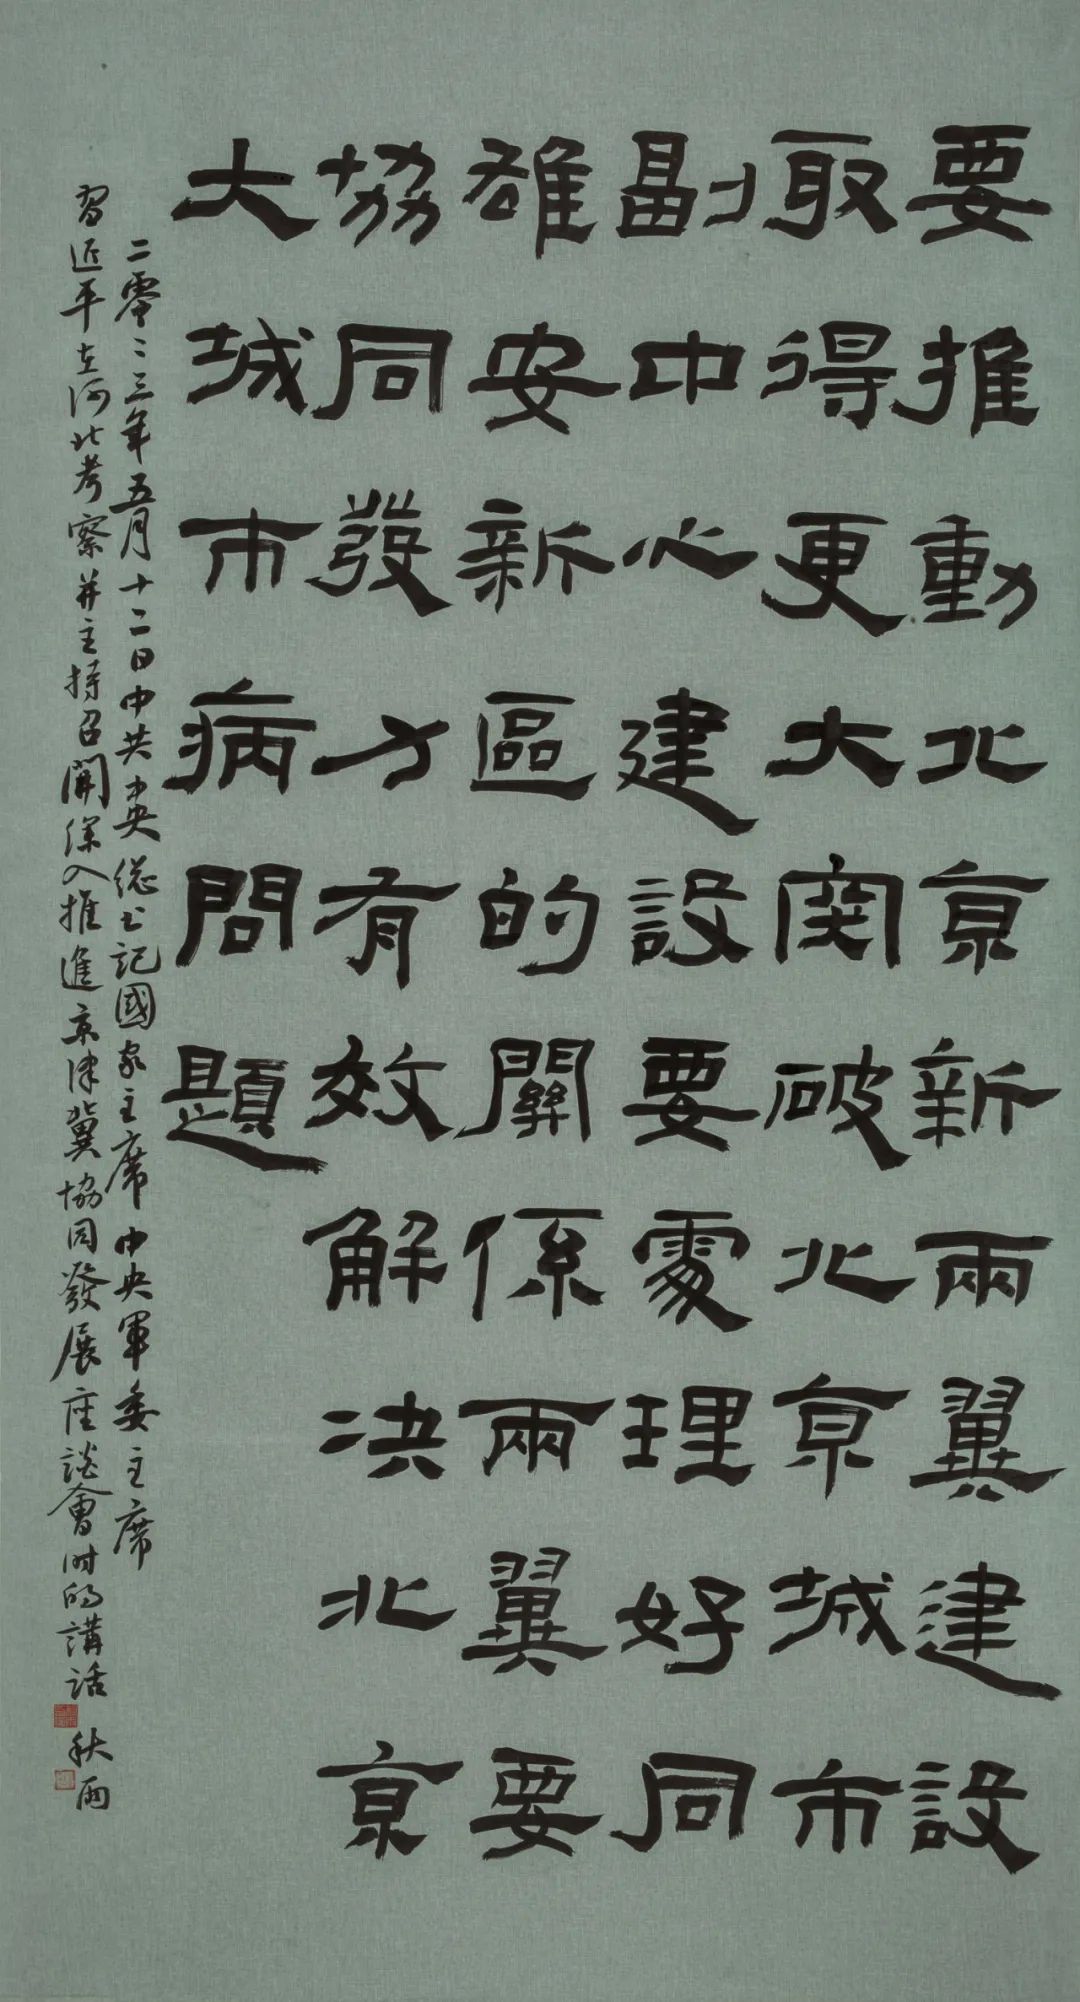 要推動北京新兩翼建設
取得更大突破北京城市
副中心建設要處理好同
雄安新區的關係兩翼要
協同發力有效解決北京
大城市病問題
二零二三年五月十二日中共中央總書記國家主席中央軍委主席
習近平在河北考察并主持召開深入推進京津冀協同發展座談會时的講話 秋雨